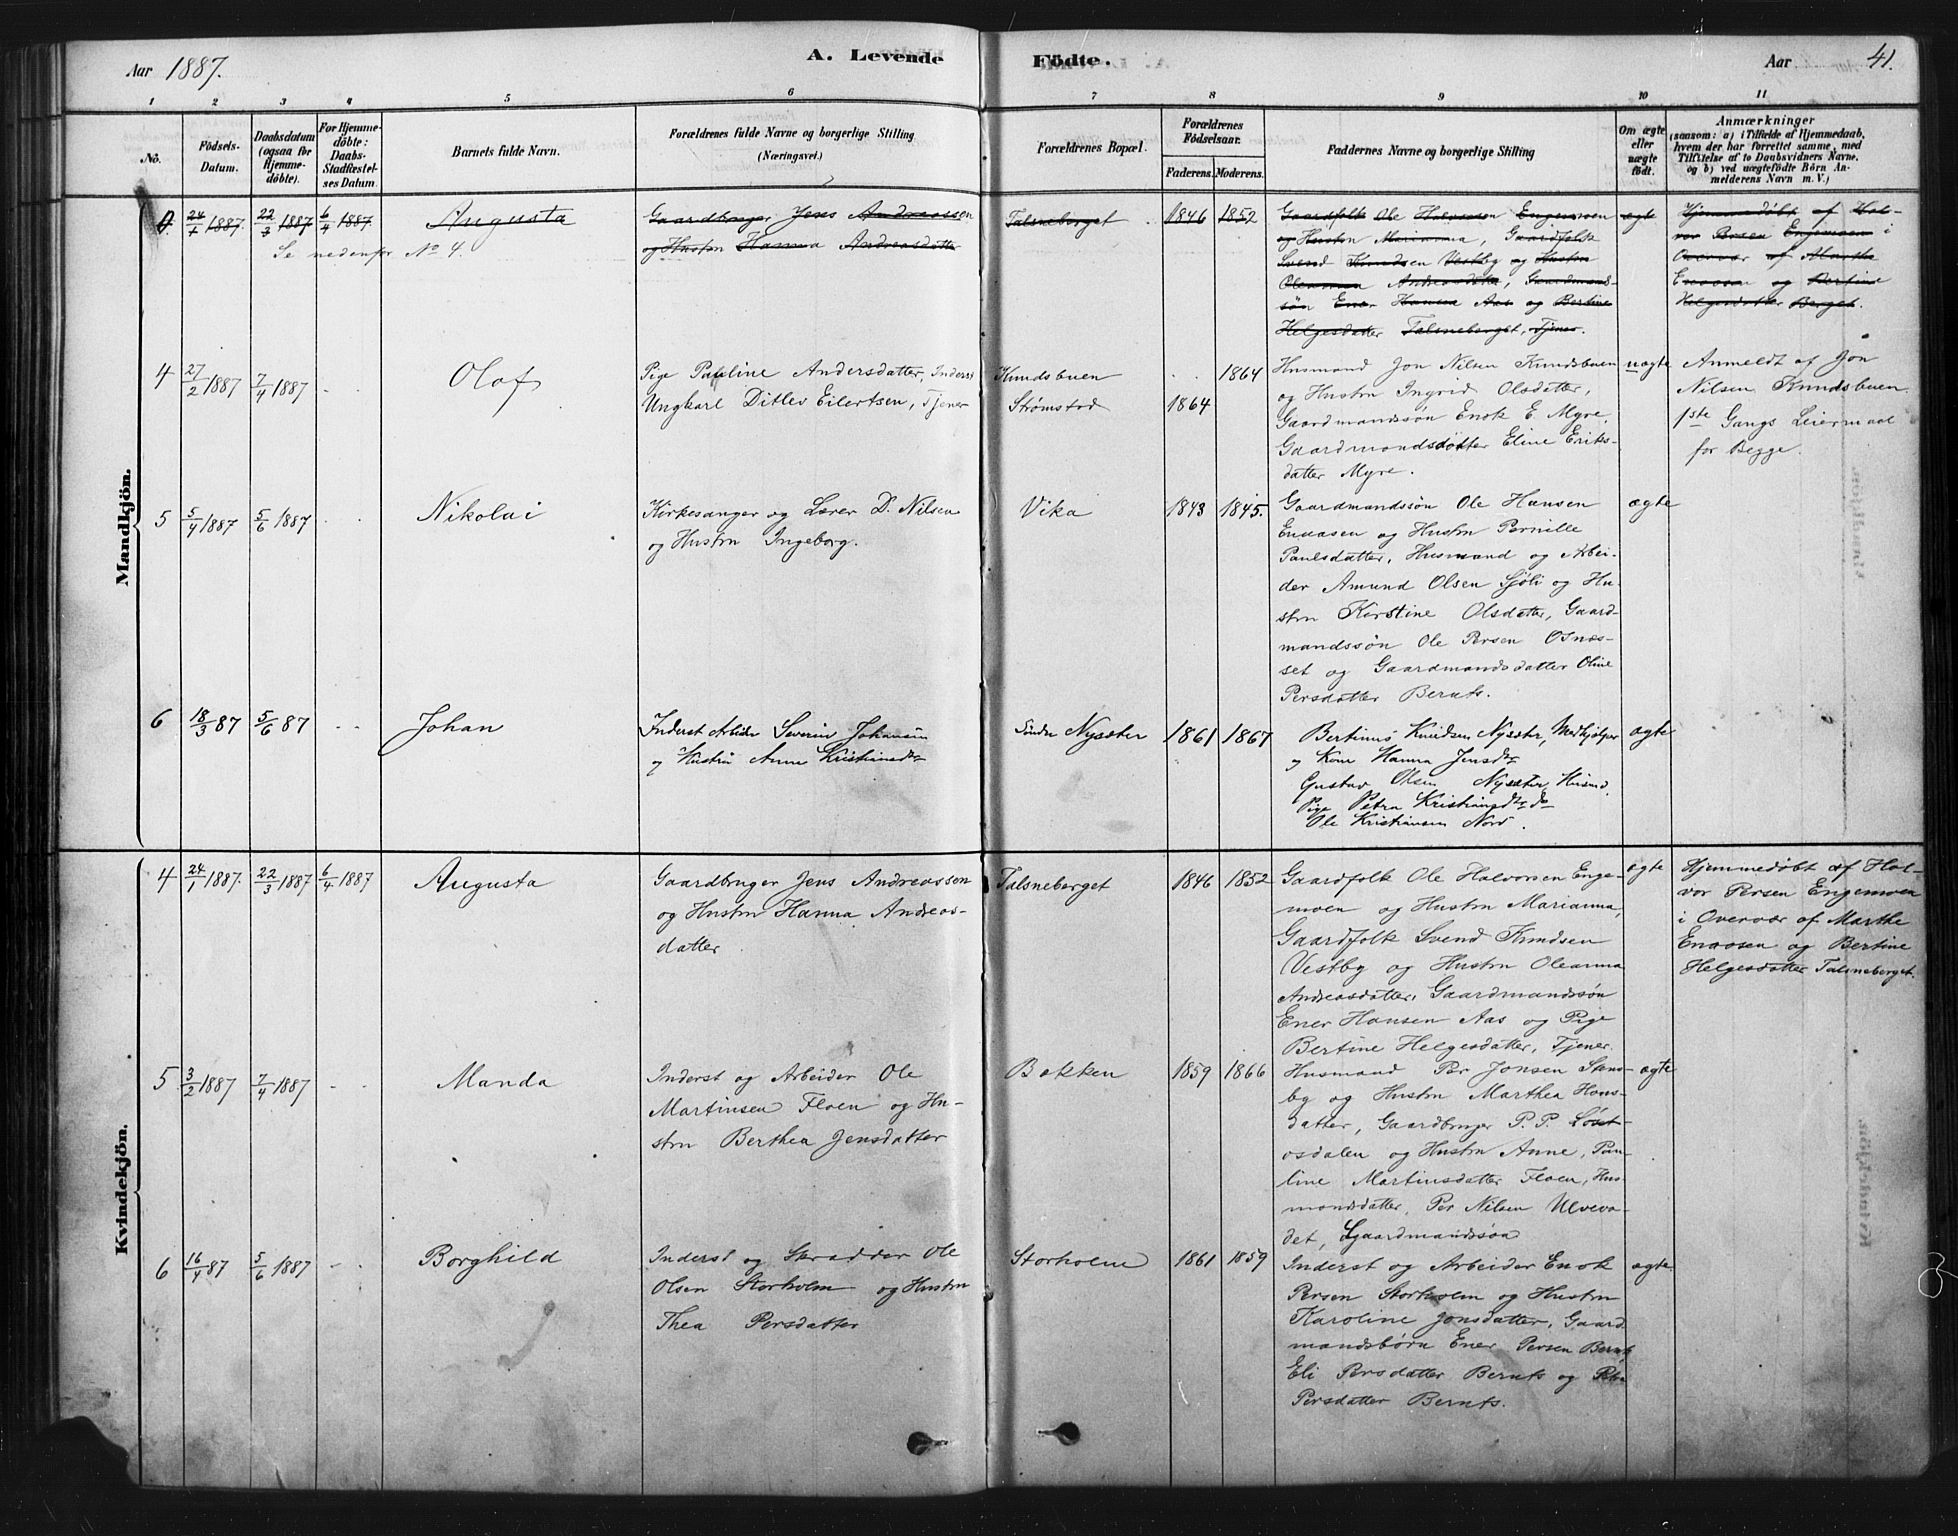 Aar 1887.
A. Levende
Födte.
Aar
41.
1 2 3 4 5 6 7 8 9 10 11
No.
Födsels-
Datum.
Daabsdatum
(ogsaa för
Hjemme-
döbte).
For Hjemme-
döbte:
Daabs-
Stadfæstel-
ses Datum.
Barnets fulde Navn.
Forældrenes fulde Navne og borgerlige Stilling
(Næringsvei.)
Forældrenes Bopæl.
Forældrenes
Födselsaar.
Faderens. Moderens.
Faddernes Navne og borgerlige Stilling
Om ægte
eller
uægte
födt.
Anmærkninger
(saasom: a) i Tilfælde af Hjemmedaab,
hvem der har forrettet samme, med
Tilföielse af to Daabsvidners Navne.
og b) ved uægtefödte Börn An-
melderens Navn m. V.)
Mandkjön.
24/1 1887. 22/3 1887 6/4 1887.
Se nedenfor No 4.
Augusta
Gaardbruger Jens Andreassen
og Hustru Hanna Andreasdatter
Talsneberget
1846 1852
Gaardfolk Ole Halvorsen Engemoen
og Hustru Marianna, Gaardfolk
Svend Knudsen Vestby og Hustru
Oleanna Andreasdatter, Gaardmand-
søn Ener Hansen Aas og Bertine
Helgesdatter Talsneberget, Tjener.
ægte
Hjemmedøbt af Hal-
vor Persen Engemoen i
Overvær af Marthe
Enaasen og Bertine
Helgesdatter Berget.
4 27/2 1887 7/4 1887
Olaf
Pige Pauline Andersdatter, Inderst
Ungkarl Ditlev Eilertsen, Tjener
Knudsbuen
Strømstad
1864
1864
Husmand Jon Nilsen Knudsbuen
og Hustru Ingrid Olsdatter,
Gaardmandssøn Enok E. Myre,
Gaardmandsdatter Eline Eriks-
datter Myre.
uægte
Anmeldt af Jon
Nilsen Knudsbuen.
1ste Gangs Leiermaal
for Begge.
5 5/4 1887 5/6 1887
Nikolai
Kirkesanger og Lærer D. Nilsen
og Hustru Ingeborg.
Vika
1843 1845.
Gaardmandssøn Ole Hansen
Enaasen og Hustru Pernille
Paulsdatter, Husmand og Arbei-
der Amund Olsen Sjöli og Hu-
stru Kirstine Olsdatter, Gaard-
mandssøn Ole Persen Osnes-
set og Gaardmandsdatter Oline
Persdatter Bernts.
ægte
6 18/3 87 5/6 87
Johan
Inderst Arbeider Severin Johansen
og Hustru Anne Kristiansdtr
Søndre Nysæter
1861 1867
Bertinus Knudsen Nysæter, Medhjælper
og Kone Hanna Jensdtr
Gustav Olsen Nysæter, Husmd,
Pige Petra Kristiansdtr do
Ole Kristiansen Nord.
ægte
Kvindekjön.
4 24/1 1887. 22/3 1887 6/4 1887
Augusta
Gaardbruger Jens Andreassen
og Hustru Hanna Andreas-
datter
Talsneberget
1846 1852
Gaardfolk Ole Halvorsen Enge-
moen og Hustru Marianna,
Gaardfolk Svend Knudsen
Vestby og Hustru Oleanna
Andreasdatter, Gaardmandssøn
Ener Hansen Aas og Pige
Bertine Helgesdatter, Tjener.
ægte
Hjemmedøbt af Hal-
vor Persen Engemoen
i Overvær af Marthe
Enaasen og Bertine
Helgesdatter Talsneberget.
5 3/2 1887 7/4 1887
Manda
Inderst og Arbeider Ole
Martinsen Floen og Hu-
stru Berthea Jensdatter
Bakken
1859 1866
Husmand Per Jonsen Sten-
by og Hustru Marthea Hans-
datter, Gaardbruger P. P. Løset-
osdalen og Hustru Anne, Pau-
line Martinsdatter Floen, Hus-
mandsdatter, Per Nilsen Ulveva-
det, Gaardmandssøn
ægte
6 16/4 87 5/6 1887
Borghild
Inderst og Skrædder Ole
Olsen Storholm og Hustru
Thea Persdatter
Storholm
1861 1859
Inderst og Arbeider Enok
Persen Storholm og Hustru
Karoline Jonsdatter, Gaard-
mandsbørn Ener Persen Bernts,
Eli Persdatter Bernts og
Persdatter Bernts.
ægte.